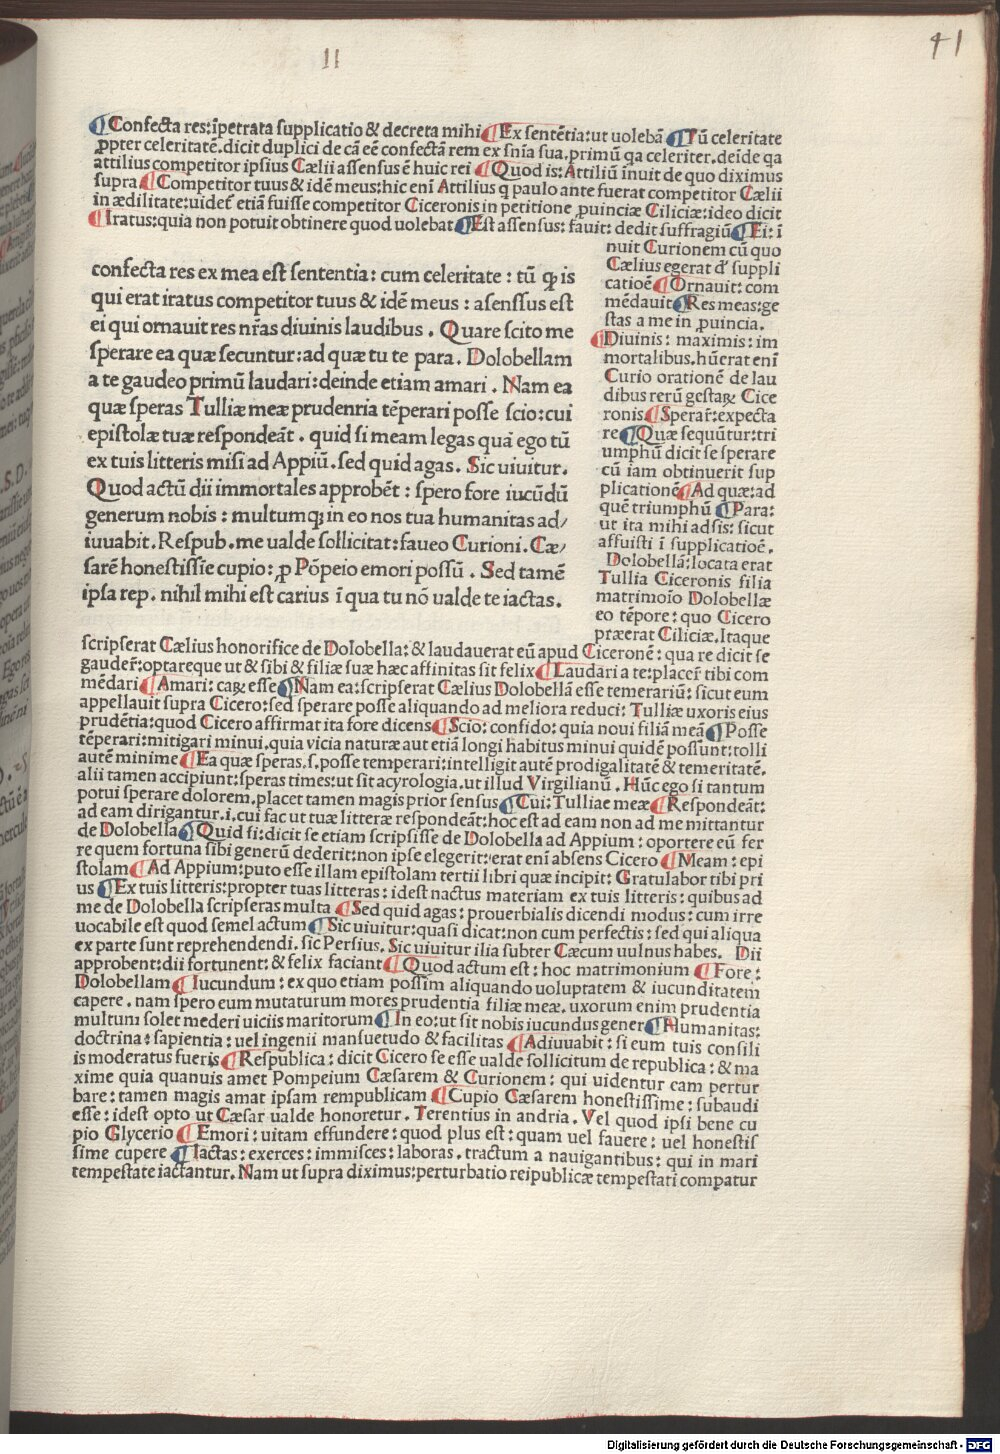 II
41
¶ Confecta res: īpetrata supplicatio & decreta mihi ¶ Ex sentētia: ut uolebā ¶ Tū celeritate
ꝓpter celeritatē. dicit duplici de cā eē confectā rem ex snīa sua. primū qa celeriter. deīde qa
attilius competitor ipsius Cælii assensus ē huic rei ¶ Quod is: Attiliū inuit de quo diximus
supra ¶ Competitor tuus & idē meus: hic enī Attilius q paulo ante fuerat competitor Cælii
in ædilitate: uidet̄ etiā fuisse competitor Ciceronis in petitione ꝓuinciæ Ciliciæ: ideo dicit
¶ Iratus: quia non potuit obtinere quod uolebat ¶ Est assensus: fauit: dedit suffragiū ¶ Ei: ī
nuit Curionem cū quo
Cælius egerat d̄ suppli
catioē ¶ Ornauit: com
mēdauit ¶ Res meas: ge
stas a me in ꝓuincia.
¶ Diuinis: maximis: im
mortalibus. hūc erat enī
Curio orationē de lau
dibus rerū gestaꝝ Cice
ronis ¶ Sperar̄: expecta
re ¶ Quæ sequūtur: tri
umphū dicit se sperare
cū iam obtinuerit sup
plicationē ¶ Ad quæ: ad
quē triumphū ¶ Para:
ut ita mihi adsis: sicut
affuisti ī supplicatioē.
Dolobellā: locata erat
Tullia Ciceronis filia
matrimoīo Dolobellæ
eo tēpore: quo Cicero
præerat Ciliciæ. Itaque
confecta res ex mea est sententia: cum celeritate: tū ꝙ is
qui erat iratus competitor tuus & idē meus: asenssus est
ei qui ornauit res nr̄as diuinis laudibus. Quare scito me
sperare ea quæ secuntur: ad quæ tu te para. Dolobellam
a te gaudeo primū laudari: deinde etiam amari. Nam ea
quæ speras Tulliæ meæ prudenria tēperari posse scio: cui
epistolæ tuæ respondeāt. quid si meam legas quā ego tū
ex tuis litteris misi ad Appiū. sed quid agas. Sic uiuitur.
Quod actū dii immortales approbēt: spero fore iucūdū
generum nobis: multumqꝫ in eo nos tua humanitas ad/
iuuabit. Respub. me ualde sollicitat: faueo Curioni. Cæ/
sarē honestissie cupio: ꝓ Pōpeio emori possū. Sed tamē
ipsa rep. nihil mihi est carius ī qua tu nō ualde te iactas.
scripserat Cælius honorifice de Dolobella: & laudauerat eū apud Ciceronē: qua re dicit se
gauder̄: optareque ut & sibi & filiæ suæ hæc affinitas sit felix ¶ Laudari a te: placer̄ tibi com
mēdari ¶ Amari: caꝝ esse ¶ Nam ea: scripserat Cælius Dolobellā esse temerariū: sicut eum
appellauit supra Cicero: sed sperare posse aliquando ad meliora reduci: Tulliæ uxoris eius
prudētia: quod Cicero affirmat ita fore dicens ¶ Scio: confido: quia noui filiā meā ¶ Posse
tēperari: mitigari minui. quia vicia naturæ aut etiā longi habitus minui quidē possunt: tolli
autē minime ¶ Ea quæ speras. s. posse temperari: intelligit autē prodigalitatē & temeritatē.
alii tamen accipiunt: speras times: ut sit acyrologia. ut illud Virgilianū. Hūc ego si tantum
potui sperare dolorem. placet tamen magis prior sensus ¶ Cui: Tulliae meæ ¶ Respondeāt:
ad eam dirigantur. i. cui fac ut tuæ litteræ respondeāt: hoc est ad eam non ad me mittantur
de Dolobella ¶ Quid si: dicit se etiam scripsisse de Dolobella ad Appium: oportere eū fer
re quem fortuna sibi generū dederit: non ipse elegerit: erat enī absens Cicero ¶ Meam: epi
stolam ¶ Ad Appium: puto esse illam epistolam tertii libri quæ incipit: Gratulabor tibi pri
us ¶ Ex tuis litteris: propter tuas litteras: idest nactus materiam ex tuis litteris: quibus ad
me de Dolobella scripseras multa ¶ Sed quid agas: prouerbialis dicendi modus: cum irre
uocabile est quod semel actum ¶ Sic uiuitur: quasi dicat: non cum perfectis: sed qui aliqua
ex parte sunt reprehendendi. sic Persius. Sic uiuitur ilia subter Cæcum uulnus habes. Dii
approbent: dii fortunent: & felix faciant ¶ Quod actum est: hoc matrimonium ¶ Fore:
Dolobellam ¶ Iucundum: ex quo etiam possim aliquando uoluptatem & iucunditatem
capere. nam spero eum mutaturum mores prudentia filiæ meæ. uxorum enim prudentia
multum solet mederi uiciis maritorum ¶ In eo: ut sit nobis iucundus gener ¶ Humanitas:
doctrina: sapientia: uel ingenii mansuetudo & facilitas ¶ Adiuuabit: si eum tuis consili
is moderatus fueris ¶ Respublica: dicit Cicero se esse ualde sollicitum de republica: & ma
xime quia quanuis amet Pompeium Cæsarem & Curionem: qui uidentur eam pertur
bare: tamen magis amat ipsam rempublicam ¶ Cupio Cæsarem honestissime: subaudi
esse: idest opto ut Cæsar ualde honoretur. Terentius in andria. Vel quod ipsi bene cu
pio Glycerio ¶ Emori: uitam effundere: quod plus est: quam uel fauere: uel honestis
sime cupere ¶ Iactas: exerces: immisces: laboras. tractum a nauigantibus: qui in mari
tempestate iactantur. Nam ut supra diximus: perturbatio reipublicæ tempestati compatur
Digitalisierung gefördert durch die Deutsche Forschungsgemeinschaft - DFG